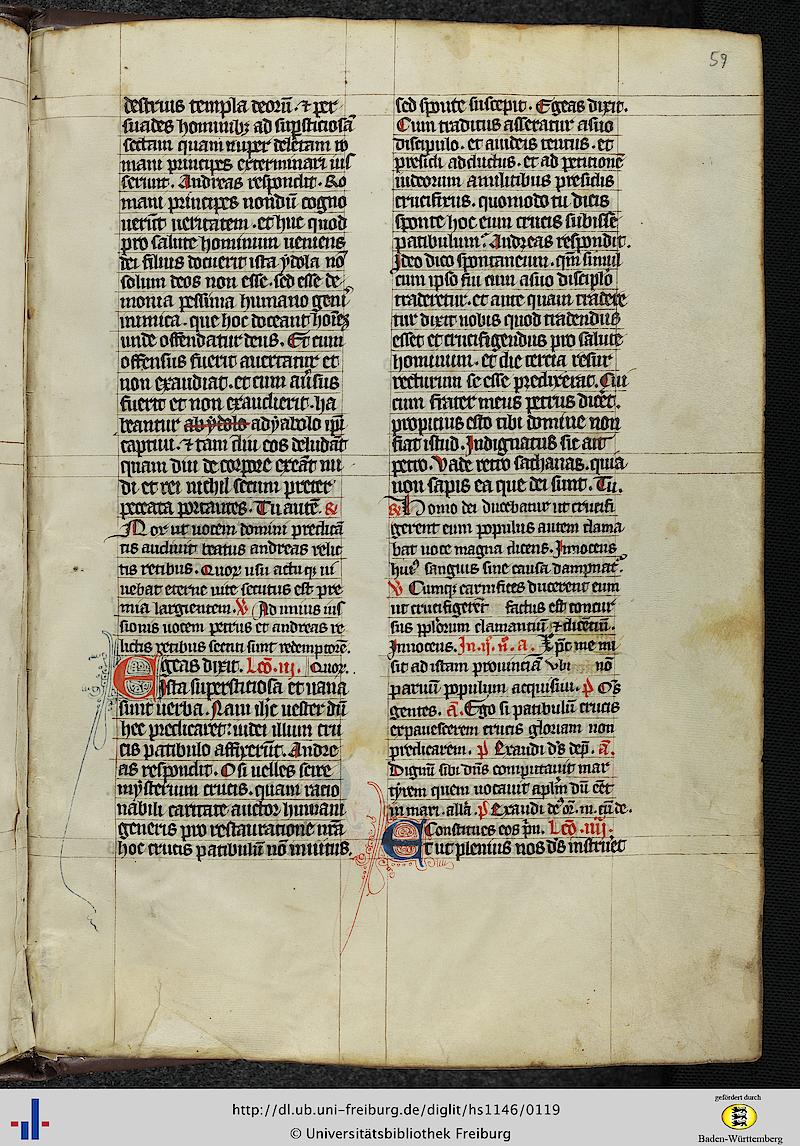 59
destruis templa deorū. ⁊ per
suades hominibꝫ ad supsticiosā
sectam quam nuper deletam ro
mani principes exterminari ius
serunt. Andreas respondit. Ro
mani principes nondū cogno
uerūt ueritatem. et huc quod
pro salute hominum ueniens
dei filius docuerit ista ydola nō
solum deos non esse. sed esse de
monia pessima humano geni
inimica. que hoc doceant hoīes
unde offendatur deus. Et cum
offensus fuerit auertatur et
non exaudiat. et cum auersus
fuerit et non exaudierit. ha
beantur ab ydolo adyabolo ipī
captiui. ⁊ tam diu eos deludāt
quam diu de corpore exeāt nu
di et rei nichil secum preter
peccata portantes. Tu autē. R
Mox ut uocem domini predicā
tis audiuit beatus andreas relic
tis retibus. Quoꝝ usu actuqꝫ ui
uebat eterne uite secutus est pre
mia largientem. V Ad unius ius
sionis uocem petrus et andreas re
lictis retibus secuti sunt redemptorē.
Egeas dixit. Lcō. iij. Quoꝝ.
Ista superstitiosa et uana
sunt uerba. Nam ihc uester dū
hec predicaret: iudei illum cru
cis patibulo affixerūt. Andre
as respondit. O si uelles scire
mysterium crucis. quam racio
nabili caritate auctor humani
generis pro restauratione nrā
hoc crucis patibulū nō inuitus.
sed sponte suscepit. Egeas dixit.
Cum traditus asseratur asuo
discipulo. et a iudeis tentus. et
presidi adductus. et ad petitionē
iudeorum amilitibus presidis
crucifixus. quomodo tu dicis
sponte hoc eum crucis subisse
patibulum? Andreas respondit.
Ideo dico spontaneum. qm̄ simul
cum ipso fui cum asuo disciplo
traderetur. et ante quam trade
tur dixit nobis quod tradendus
esset et crucifigendus pro salute
hominum. et die tercia resur
recturum se esse predixerat. Cui
cum frater meus petrus dicēt.
propitius esto tibi domine non
fiat istud. Indignatus sic ait
petro. Vade retro sathanas. quia
non sapis ea que dei sunt. Tu.
R Homo dei ducebatur ut crucifi
gerent eum populus autem clama
bat uoce magna dicens. Innocens
huiꝰ sanguis sine causa dampnatꝰ.
V Cumqꝫ carnifices ducerent eum
ut crucifigeret factus est concur
sus pplorum clamantiū ⁊ dicentiū.
Innocens. In. ij. n̄. a. Xp̄c me mi
sit ad istam prouinciā vbi nō
paruū populum acquisiui. p̄ Om̄s
gentes. a. Ego si patibulū crucis
expauescerem crucis gloriam non
predicarem. p̄ Exaudi ds̄ dep̄. a.
Dignū sibi dn̄s computauit mar
tyrem quem uocauit apl̄m dū eēt
in mari. allā. p̄ Exaudi dē or̄. m. cū de.
Constitues eos p̄n. Lcō. iiij.
Et ut plenius nos ds̄ instruet
http://dl.ub.uni-freiburg.de/diglit/hs1146/0119
© Universitätsbibliothek Freiburg
gefördert durch
Baden-Württemberg